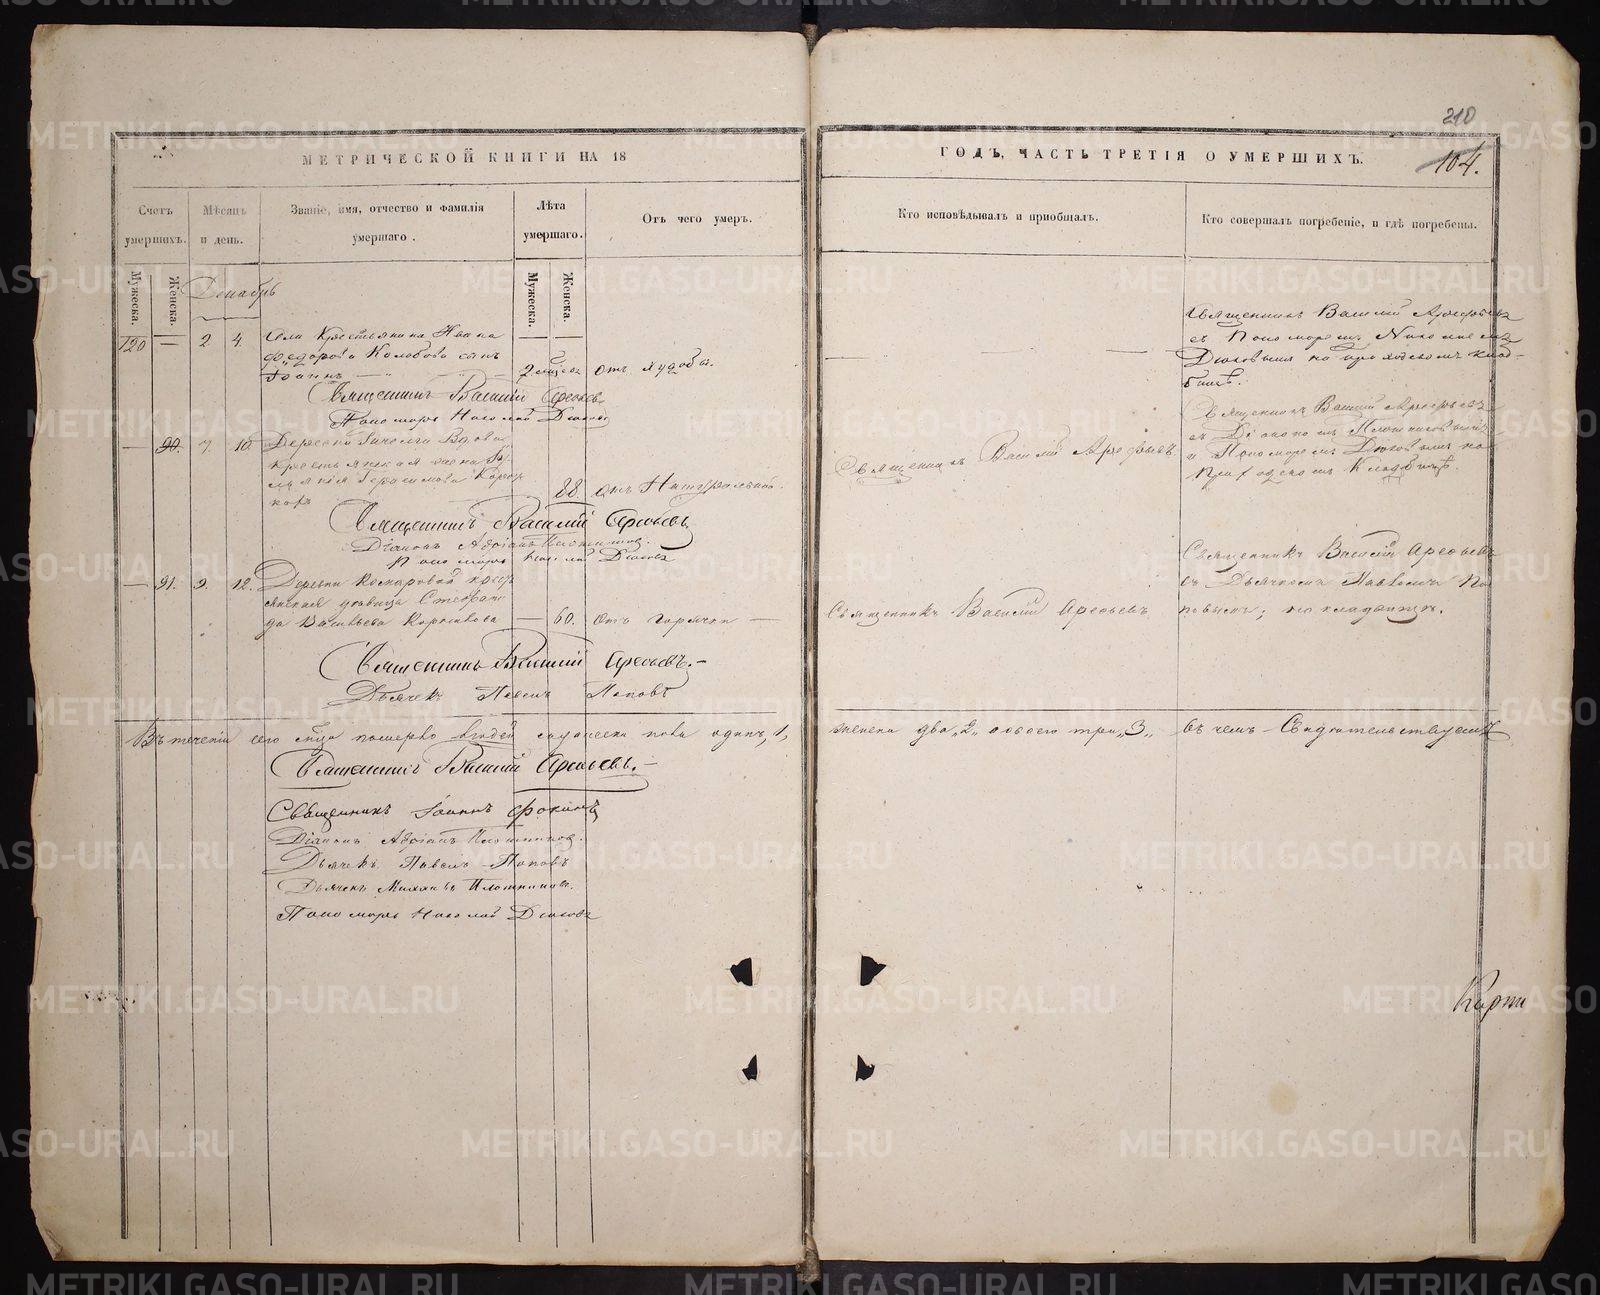 210
104.
МЕТРИЧЕСКОЙ КНИГИ НА 18
ГОДЪ, ЧАСТЬ ТРЕТІЯ О УМЕРШИХЪ.
Счетъ умершихъ.
Мѣсяцъ и день.
Званіе, имя, отчество и фамилія умершаго.
Лѣта умершаго.
Отъ чего умеръ.
Кто исповѣдывалъ и пріобщалъ.
Кто совершалъ погребеніе, и гдѣ погребены.
Мужеска.
Женска.
Мужеска.
Женска.
Декабрь
120 — 2 4.
Села Крестьянина Ивана
Федорова Колобова сынъ
Іоаннъ
2 мѣсяца
отъ худобы.
Священникъ Василій Арефьевъ
съ Пономаремъ Николаемъ
Дюковымъ на приходскомъ клад-
бищѣ.
Священникъ Василій Арефьевъ
Пономарь Николай Дюковъ
— 90. 7. 10.
Деревни Вдова
крестьянская жена
Герасимова
88
отъ Натуральной.
Священникъ Василій Арефьевъ
Священникъ Василій Арефьевъ
съ Діакономъ Плотниковымъ
и Пономаремъ Дюковымъ на
Приходскомъ Кладбищѣ.
Священникъ Василій Арефьевъ
Діаконъ Адріанъ Плотниковъ.
Пономарь Николай Дюковъ
— 91. 9. 12.
Деревни Комаровой крест
янская дѣвица Степани
да Васильева Коровкова
— 60.
отъ горячки —
Священникъ Василій Арефьевъ
Священникъ Василій Арефьевъ
съ Дьячкомъ Павломъ По
повымъ; на кладбищѣ.
Священникъ Василій Арефьевъ.—
Дьячекъ Павелъ Поповъ
Въ теченіи сего м-ца померло людей мужеска пола одинъ „1„
женска два „2„ обоего три „3„ въ чемъ Свидѣтельствуемъ
Священникъ Василій Арефьевъ.—
Священникъ Іоаннъ Фокинъ
Діаконъ Адріанъ Плотниковъ.
Дьячекъ Павелъ Поповъ
Дьячекъ Михаилъ Плотниковъ.
Пономарь Николай Дюковъ
METRIKI.GASO-URAL.RU